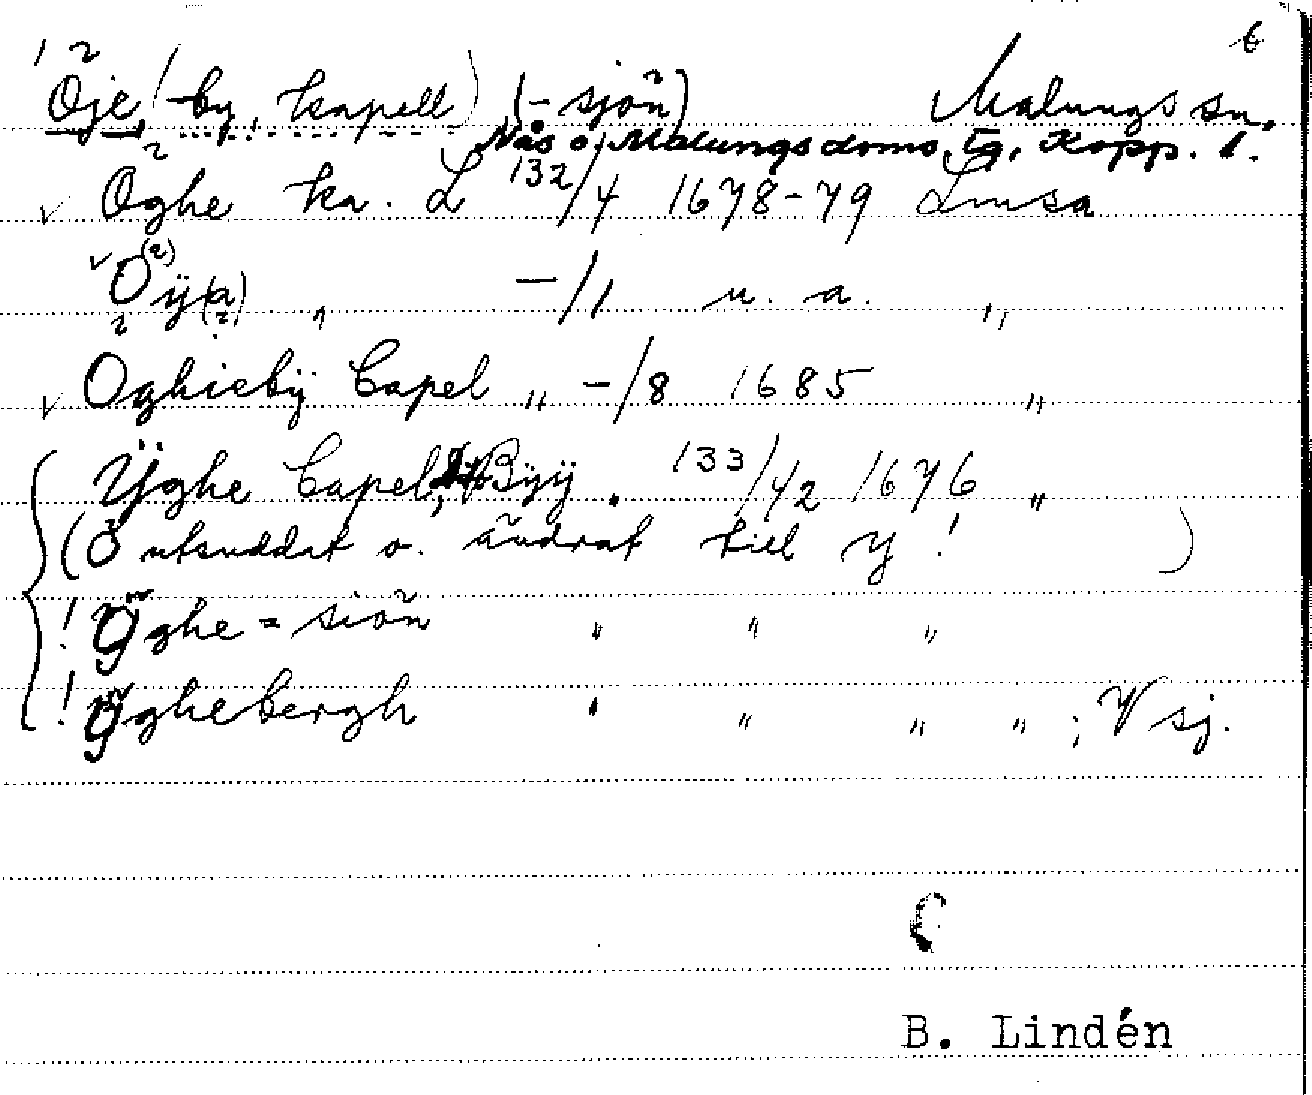 6
Öje (-by, kapell) (-sjön) Malungs sn,
Nås o. Malungs doms. tg, Kopp. l.
Öghe ka. L 132/4 1678-79 Limsa
Öÿ(a) " -/1 u. a. "
Öghiebÿ Capel " -/8 1685 "
Ÿghe Capel, Bÿÿ . 133/42 1676 "
(Ö utsuddat o. ändrat till y! )
! Ÿghe = siön " " "
! Ÿghebergh " " " " ; V sj.
B. Lindén